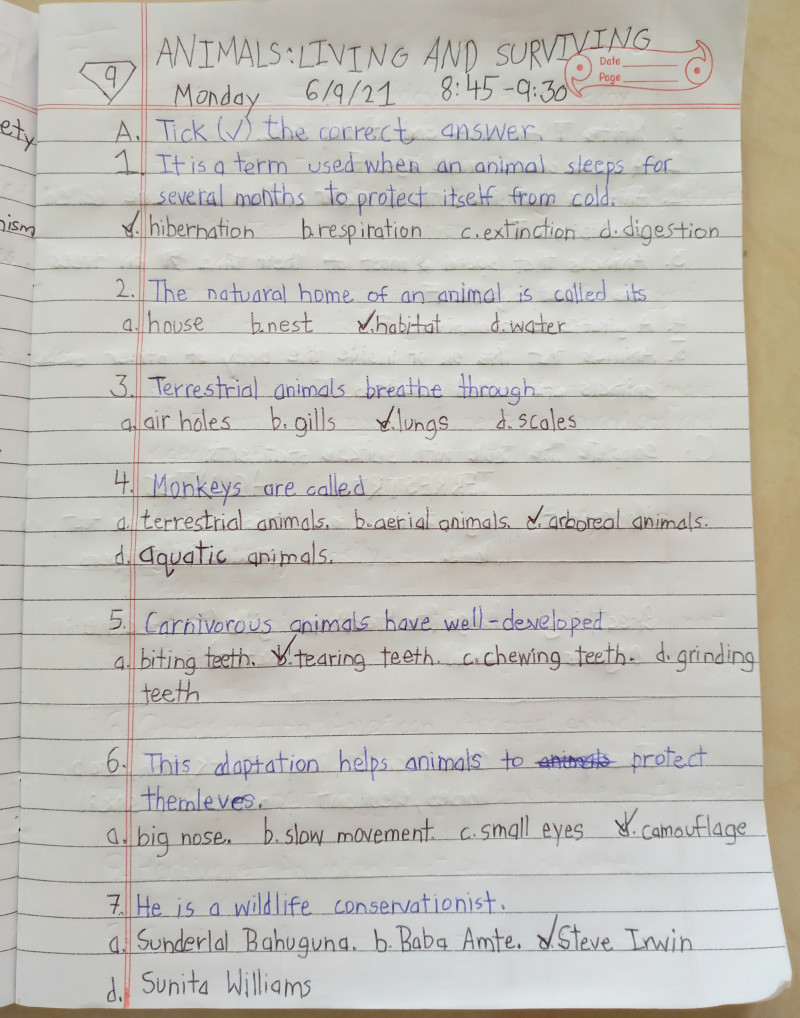 ANIMALS:LIVING AND SURVIVING
9
Date
Page
Monday 6/9/21 8:45-9:30
ety
A. Tick (✓) the correct answer.
1. It is a term used when an animal sleeps for
several months to protect itself from cold.
nism
✓. hibernation b.respiration c.extinction d.digestion
2. The natuaral home of an animal is called its
a. house b.nest ✓.habitat d.water
3. Terrestrial animals breathe through
a. air holes b. gills ✓.lungs d. scales
4. Monkeys are called
a. terrestrial animals. b.aerial animals. ✓. arboreal animals.
d. aquatic animals.
5. Carnivorous animals have well-developed
a. biting teeth. ✓.tearing teeth. c.chewing teeth. d. grinding
teeth
6. This adaptation helps animals to animals protect
themleves.
a. big nose. b. slow movement. c. small eyes ✓. camouflage
7. He is a wildlife conservationist.
a. Sunderlal Bahuguna. b. Baba Amte. ✓.Steve Irwin
d. Sunita Williams